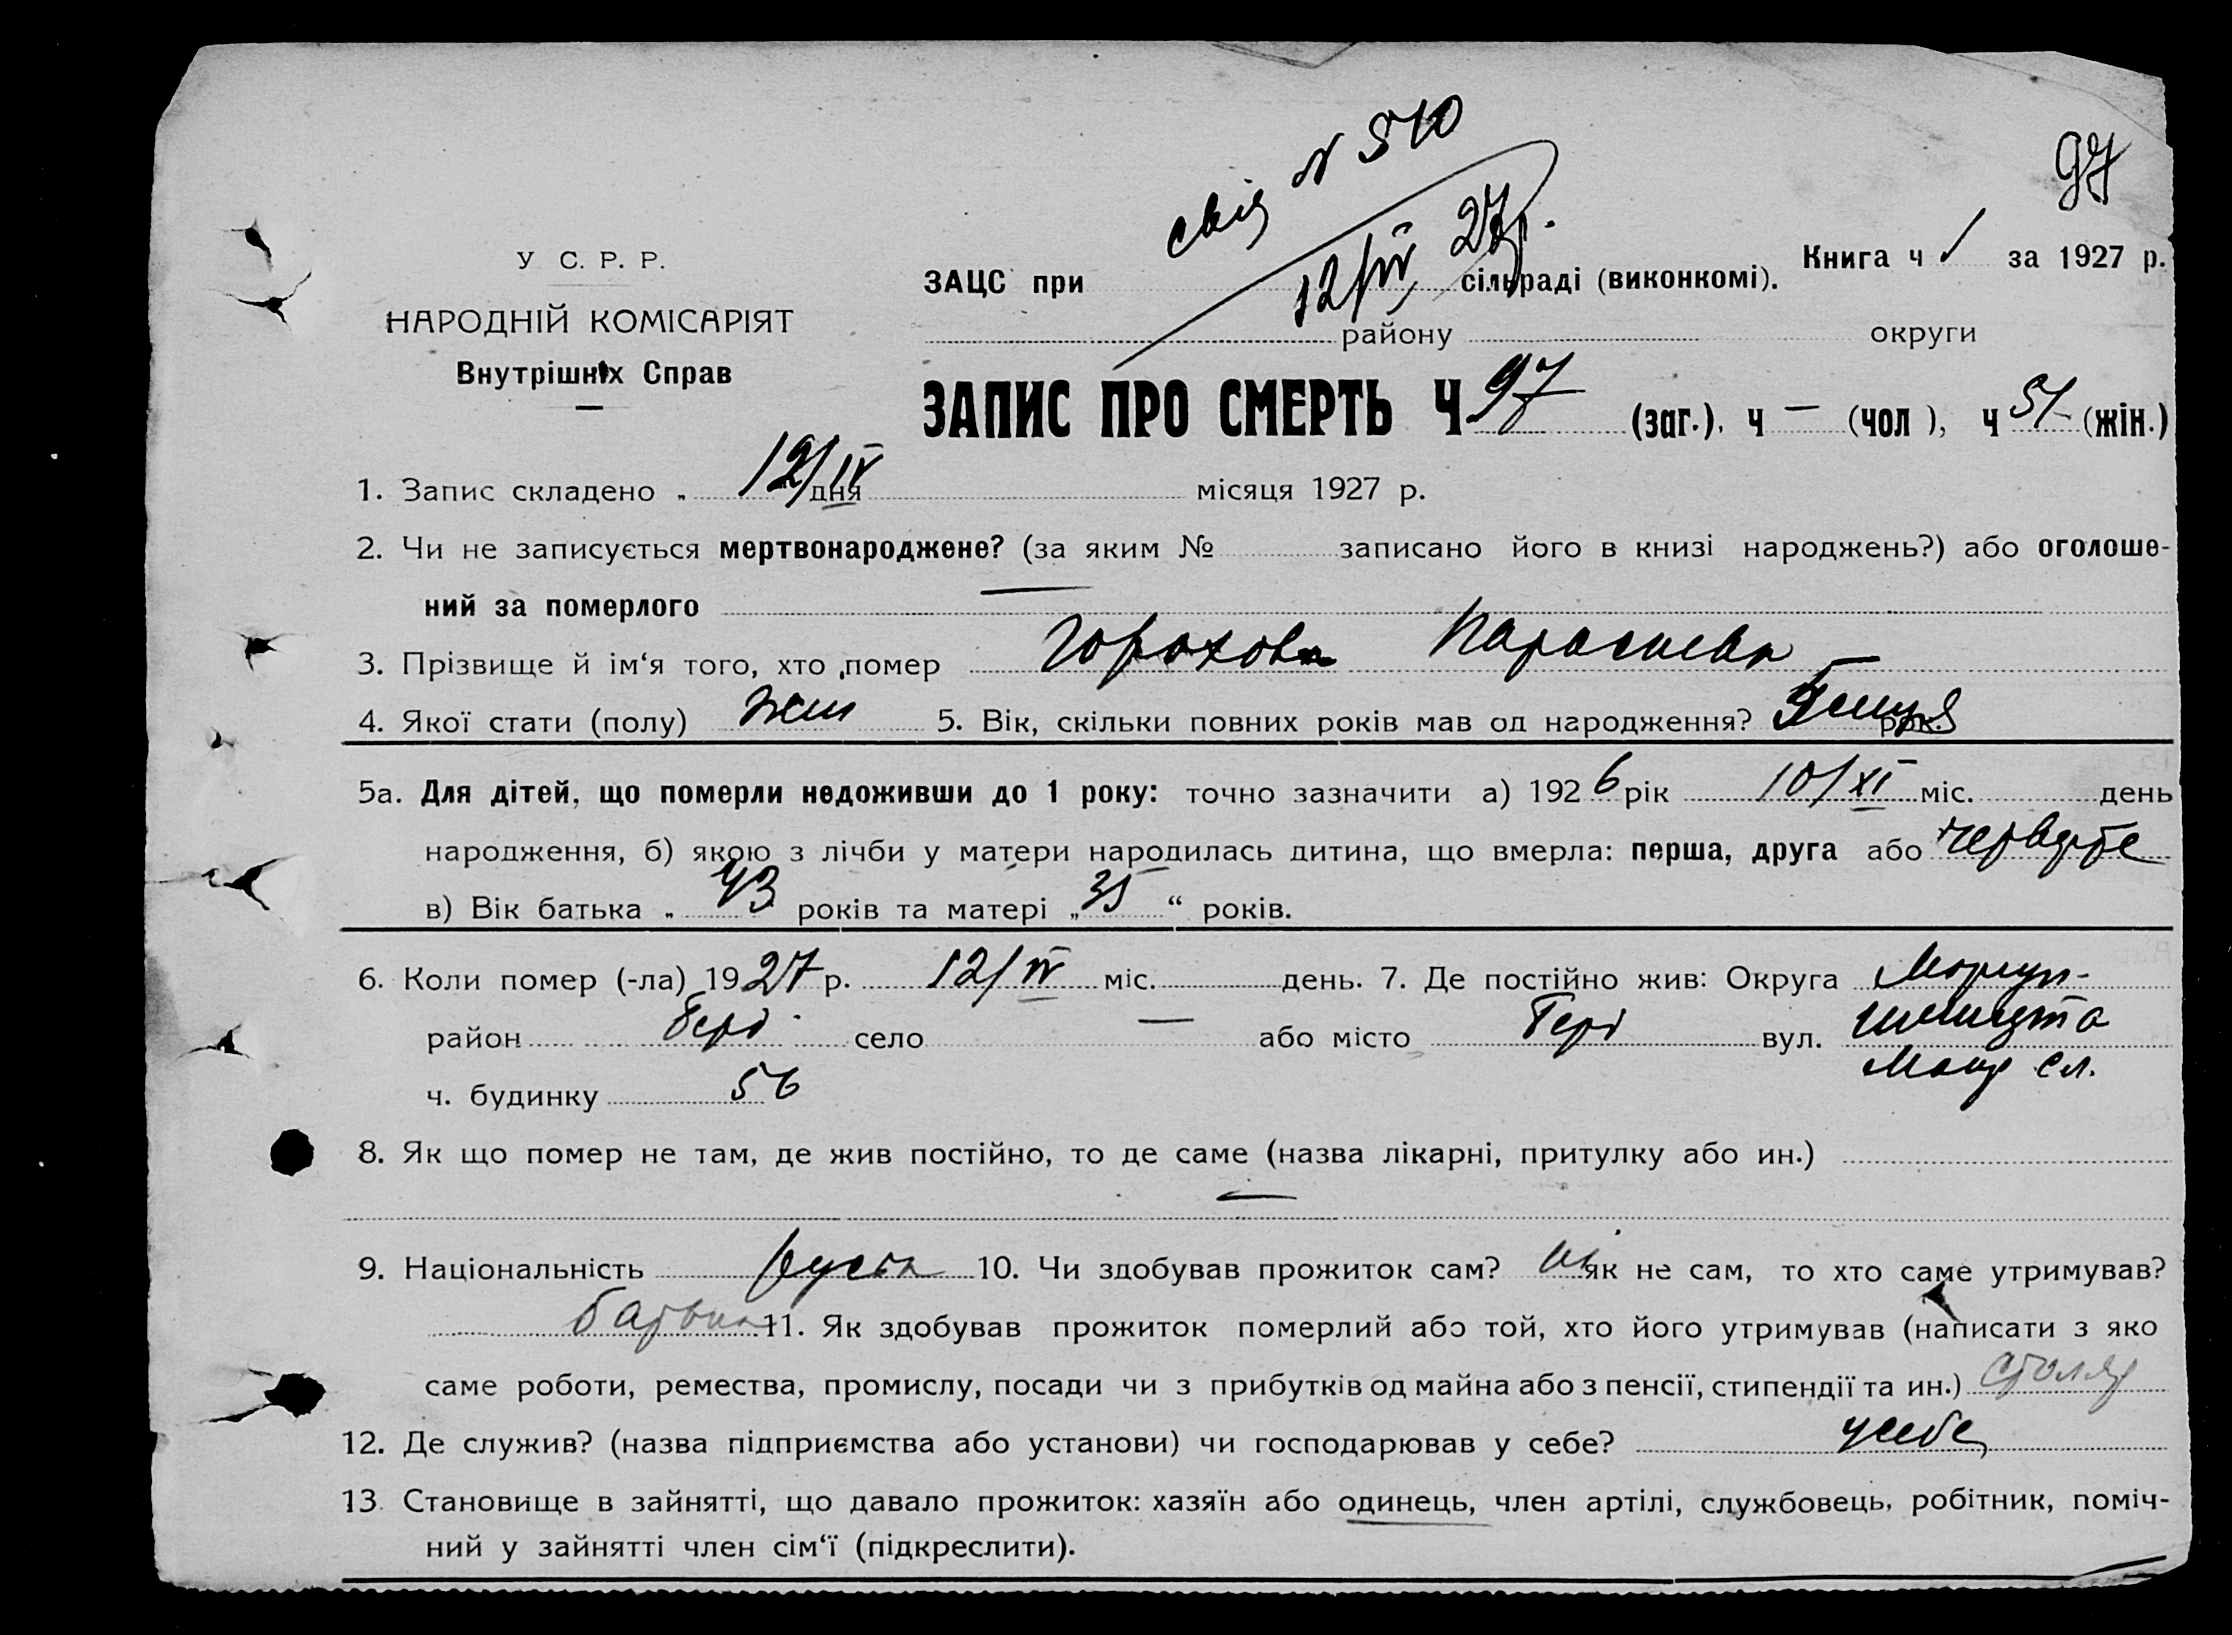 97
свід N 510
12/IV 27р.
У. С. Р. Р.
НАРОДНІЙ КОМІСАРІЯТ
Внутрішніх Справ
Книга ч 1 за 1927 р.
ЗАЦС при сільраді (виконкомі).
району округи
ЗАПИС ПРО СМЕРТЬ Ч 97 (заг.). ч — (чол ), ч 51 (жін.)
1. Запис складено „ 12/IV дня місяця 1927 р.
2. Чи не записується мертвонароджене? (за яким № записано його в книзі народжень?) або оголоше-
ний за померлого —
3. Прізвище й ім‘я того, хто помер Горохова Параскева
4. Якої стати (полу) жін 5. Вік, скільки повних років мав од народження? 5 місяц рок.
5а. Для дітей, що померли недоживши до 1 року: точно зазначити а) 1926 рік 10/XI міс. день
народження, б) якою з лічби у матери народилась дитина, що вмерла: перша, друга або
в) Вік батька „ 43 років та матері „ 35 “ років.
6. Коли помер (-ла) 1927 р. 12/IV міс. день. 7. Де постійно жив: Округа Маріуп-
район Берд село — або місто Берд вул.
ч. будинку 56
8. Як що помер не там, де жив постійно, то де саме (назва лікарні, притулку або ин.)
—
9. Національність руська 10. Чи здобував прожиток сам? ні як не сам, то хто саме утримував?
батько 11. Як здобував прожиток померлий або той, хто його утримував (написати з яко
саме роботи, ремества, промислу, посади чи з прибутків од майна або з пенсії, стипендії та ин.) столяр
12. Де служив? (назва підприємства або установи) чи господарював у себе? у себе
13. Становище в зайнятті, що давало прожиток: хазяїн або одинець, член артілі, службовець, робітник, поміч-
ний у зайнятті член сім‘ї (підкреслити).